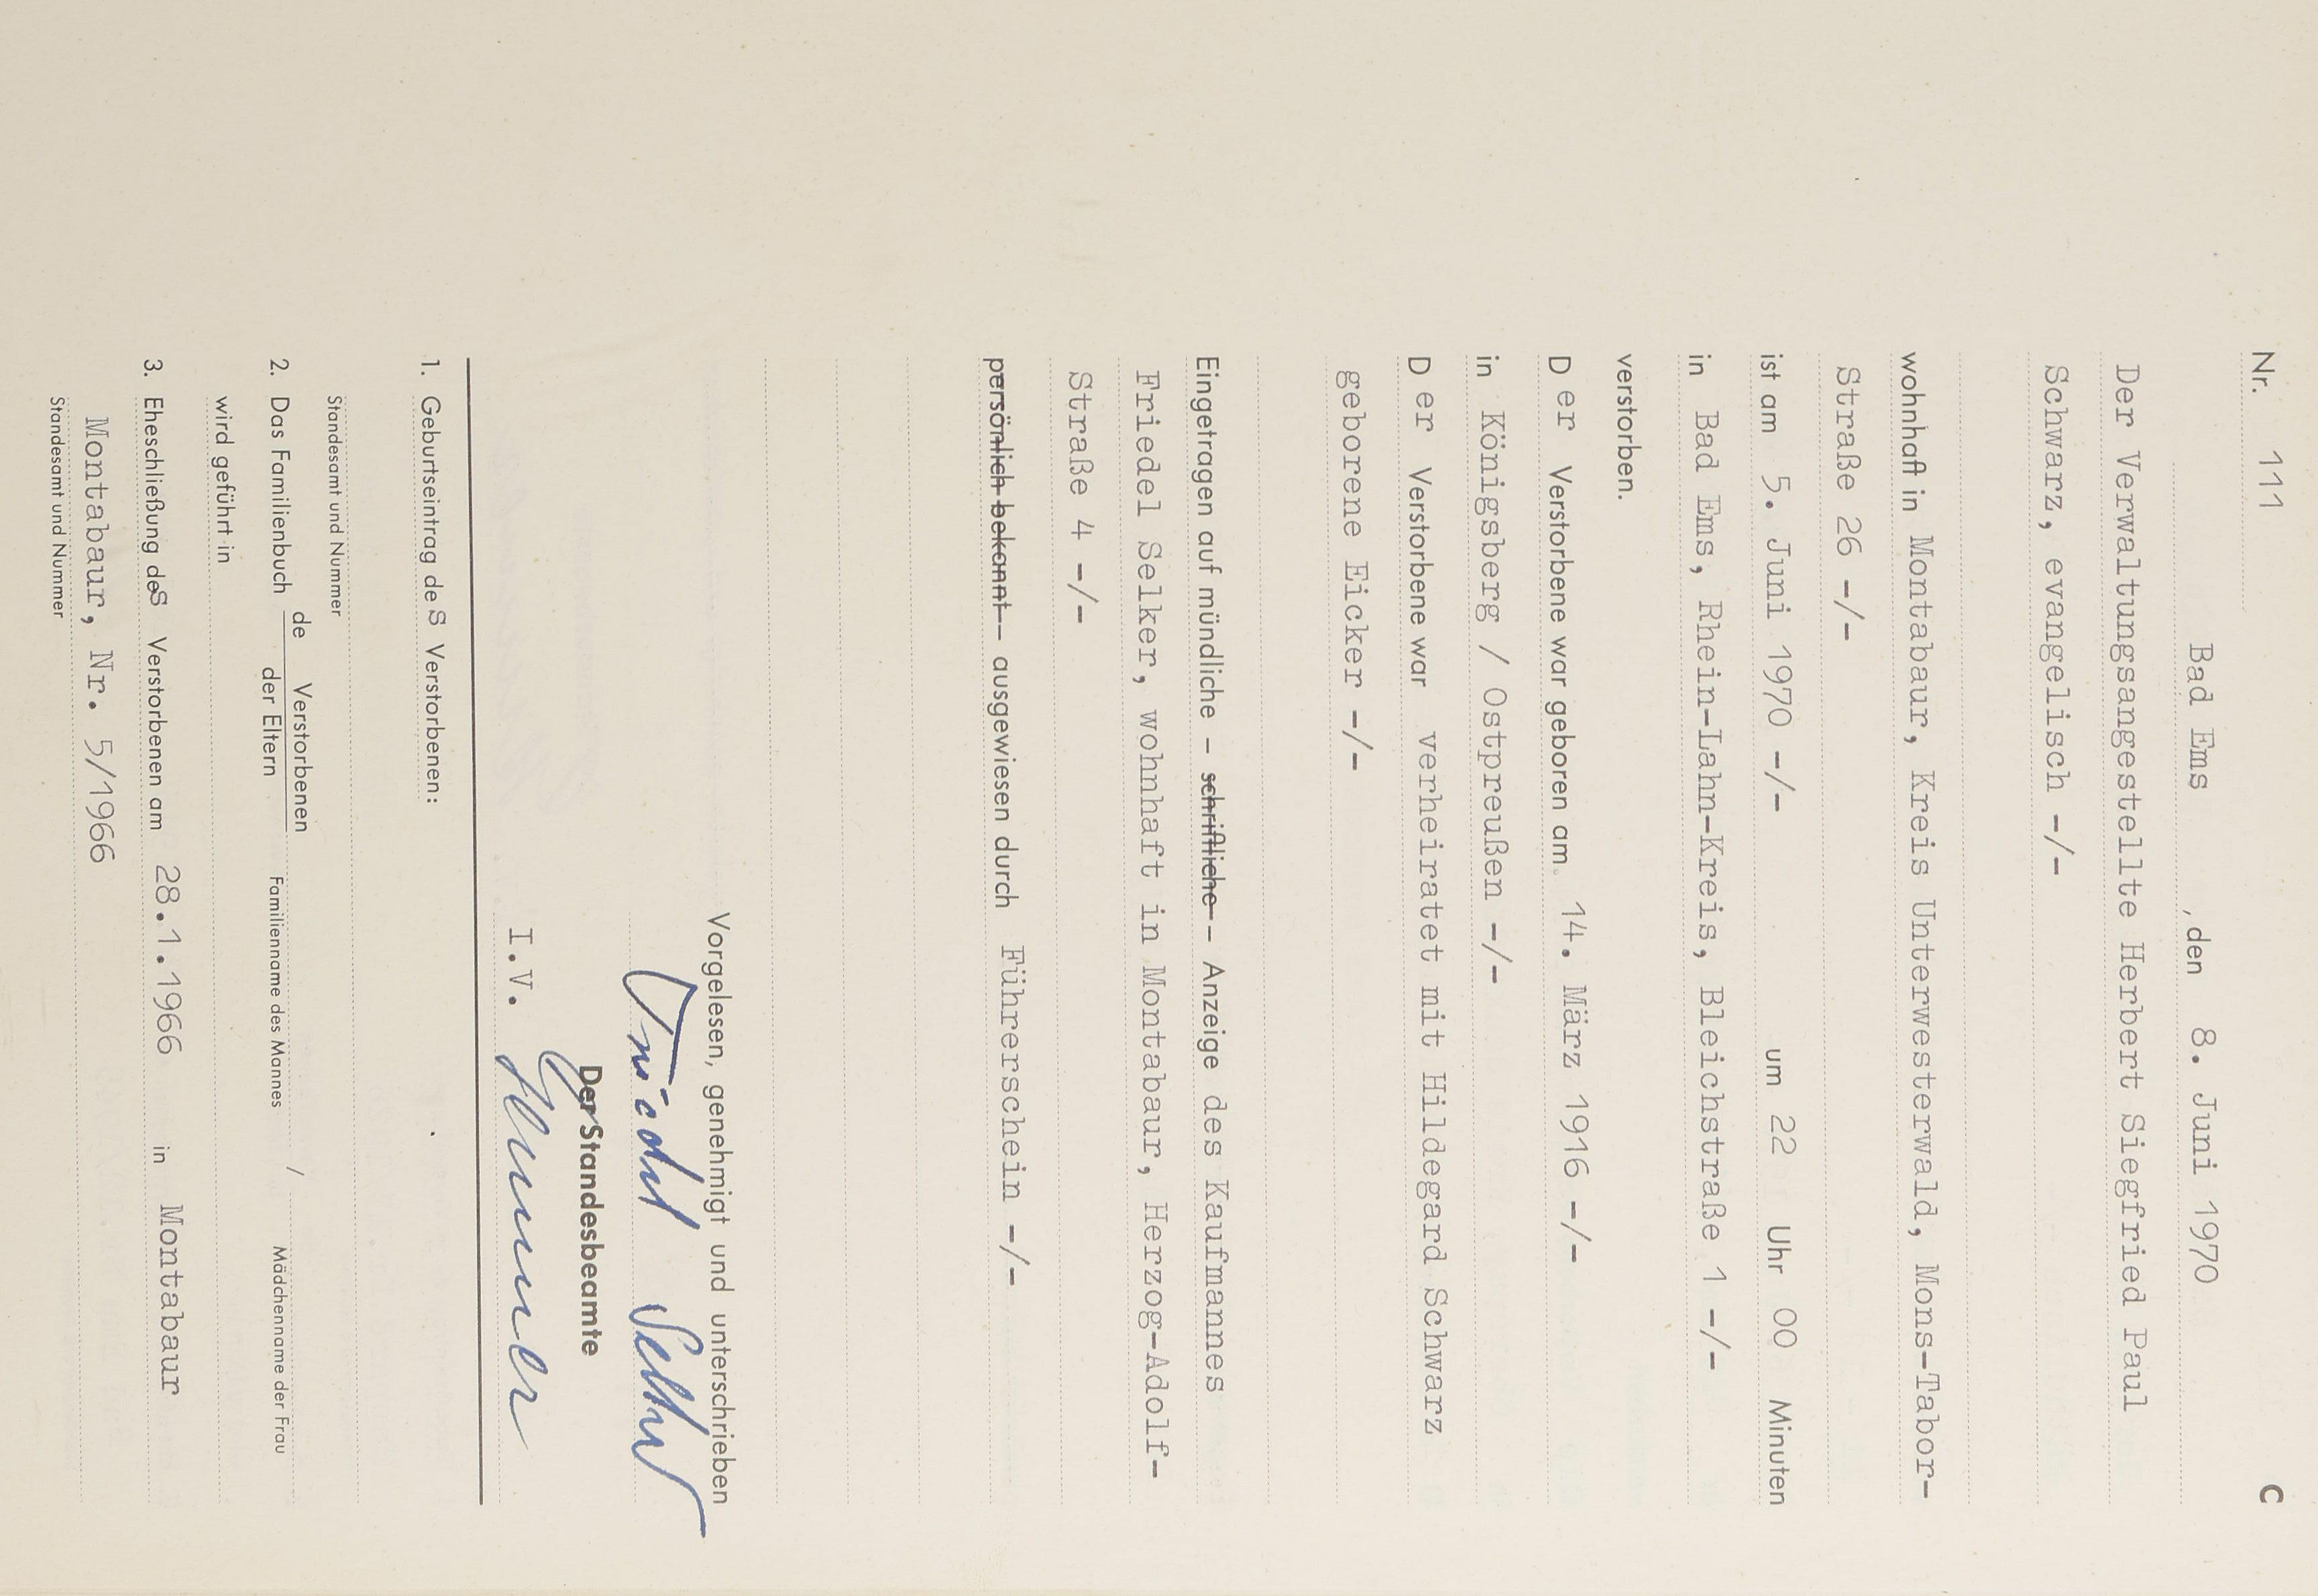 Nr. 111 C
Bad Ems , den 8. Juni 1970
Der Verwaltungsangestellte Herbert Siegfried Paul
Schwarz, evangelisch -/-
wohnhaft in Montabaur, Kreis Unterwesterwald, Mons-Tabor-
Straße 26 -/-
ist am 5. Juni 1970 -/- um 22 Uhr 00 Minuten
in Bad Ems, Rhein-Lahn-Kreis, Bleichstraße 1 -/-
verstorben.
D er Verstorbene war geboren am 14. März 1916 -/-
in Königsberg / Ostpreußen -/-
D er Verstorbene war verheiratet mit Hildegard Schwarz
geborene Eicker -/-
Eingetragen auf mündliche – schriftliche – Anzeige des Kaufmannes
Friedel Selker, wohnhaft in Montabaur, Herzog-Adolf-
Straße 4 -/-
persönlich bekannt – ausgewiesen durch Führerschein -/-
Vorgelesen, genehmigt und unterschrieben
Friedel Selker
Der Standesbeamte
I.V.
1. Geburtseintrag des Verstorbenen:
Standesamt und Nummer
2. Das Familienbuch de Verstorbenen / der Eltern /
Familienname des Mannes Mädchenname der Frau
wird geführt in
3. Eheschließung des Verstorbenen am 28.1.1966 in Montabaur
Montabaur, Nr. 5/1966
Standesamt und Nummer